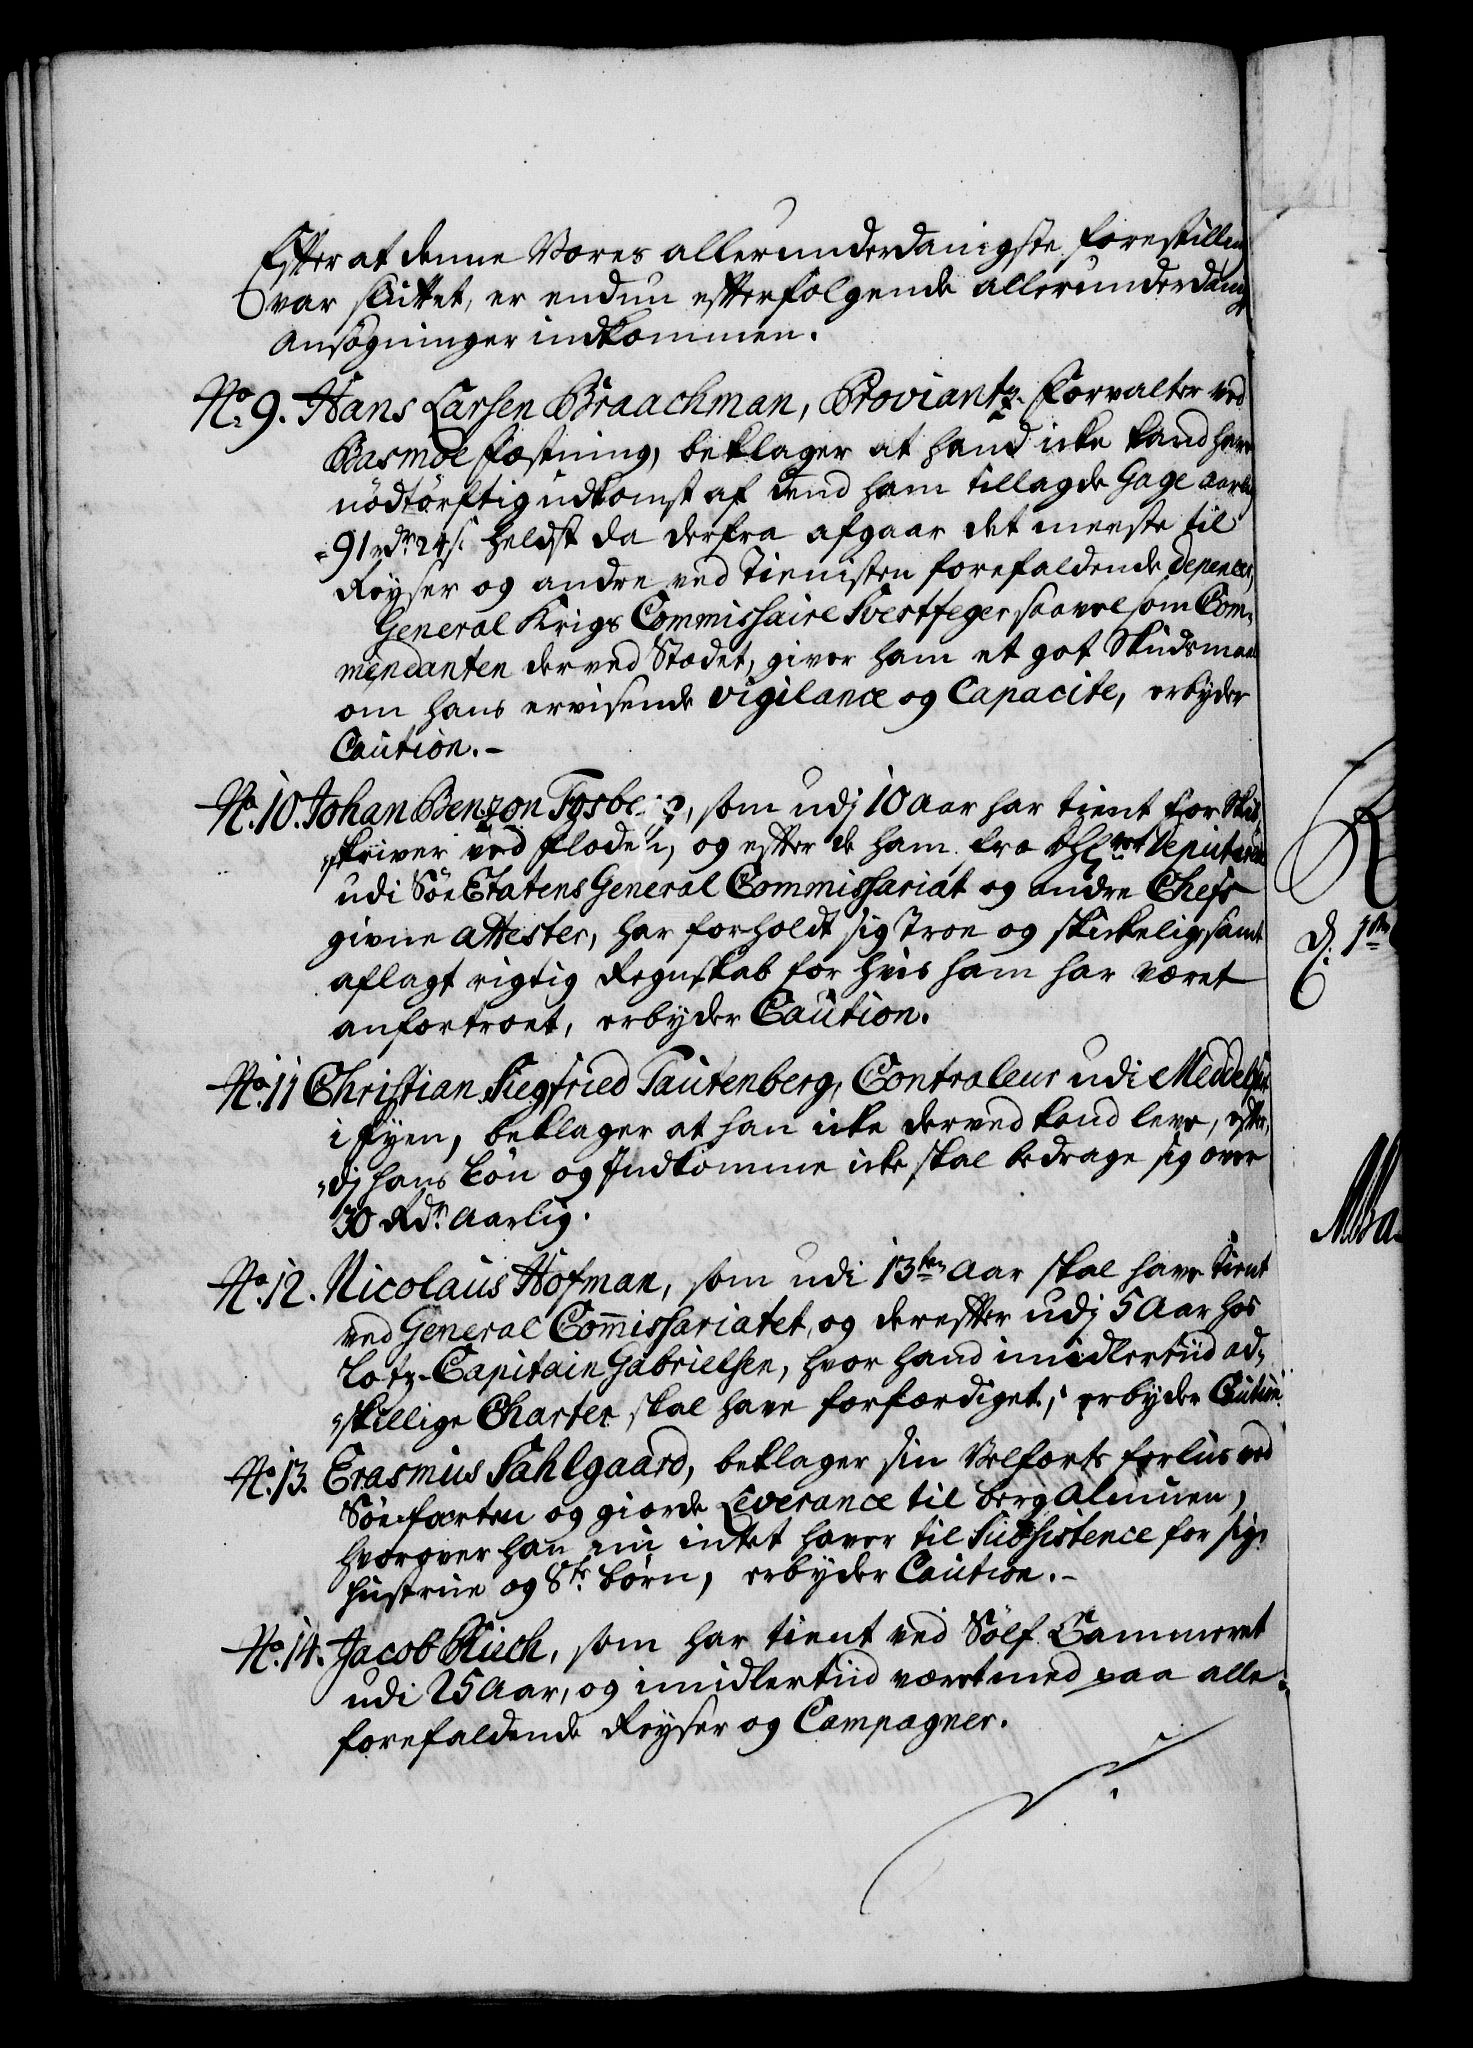 Efter at denne Vores allerunderdanigste forestilling
var sluttet, er endnu efterfølgende allerunderdanig
ansøgninger indkommen.
No. 9. Hans Larsen Braachman, Proviantz-Forvalter ved
Basmoe fæstning, beklager at hand icke kand have
nödtörftig udkomst af dend ham tillagde Gage aarlig
91 rdr. 24 s. heldst da derfra afgaar det meeste til
Reyser og andre ved Tienisten forefaldende depences,
General Krigs Commissaire Svertfeger saavel som Com-
mendanten der ved Stædet, giver ham et got Skudsmaal
om hans ervisende vigilance og Capacite, erbyder
Caution.-
No. 10. Johan Benzon Fosberg, som udj 10 aar har tient for Skibs
skriver ved floden, og efter de ham fra Deputerede
udi Söe Etatens General Commissariat og andre Chefs
givne attester, har forholdt sig troe og skickelig, samt
aflagt rigtig Regnskab for hvis ham har været
anfortroet, erbyder Caution.
No. 11 Christian Siegfried Tautenberg, Controleur udi Meddelfart
i fyen, beklager at han icke derved kand leve, efter,
dj hans Lön og Indkomme icke skal bedrage sig over
30 Rdr. aarlig.
No. 12. Nicolaus Hofman, som udi 13ten Aar skal have tient
ved General Com̄issariatet, og derefter udj 5 Aar hos
Lotz-Capitain Gabrielsen, hvor hand imidlertiid ad,
skillige Charter skal have forfærdiget, erbyder Caution.
No. 13. Erasmus Sahlgaard, beklager sin Velfærts forliis ved
Söefarten og giorde Leverance til berg Alunen,
hvorover han nu intet haver til Subsistence for sig,
hustrue og 8te börn, erbyder Caution.-
No. 14. Jacob Ruch, som har tient ved Sölf Cammeret
udi 25 Aar, og imidlertiid været med paa alle
forefaldende Reyser og Campagner.
d. 1ste